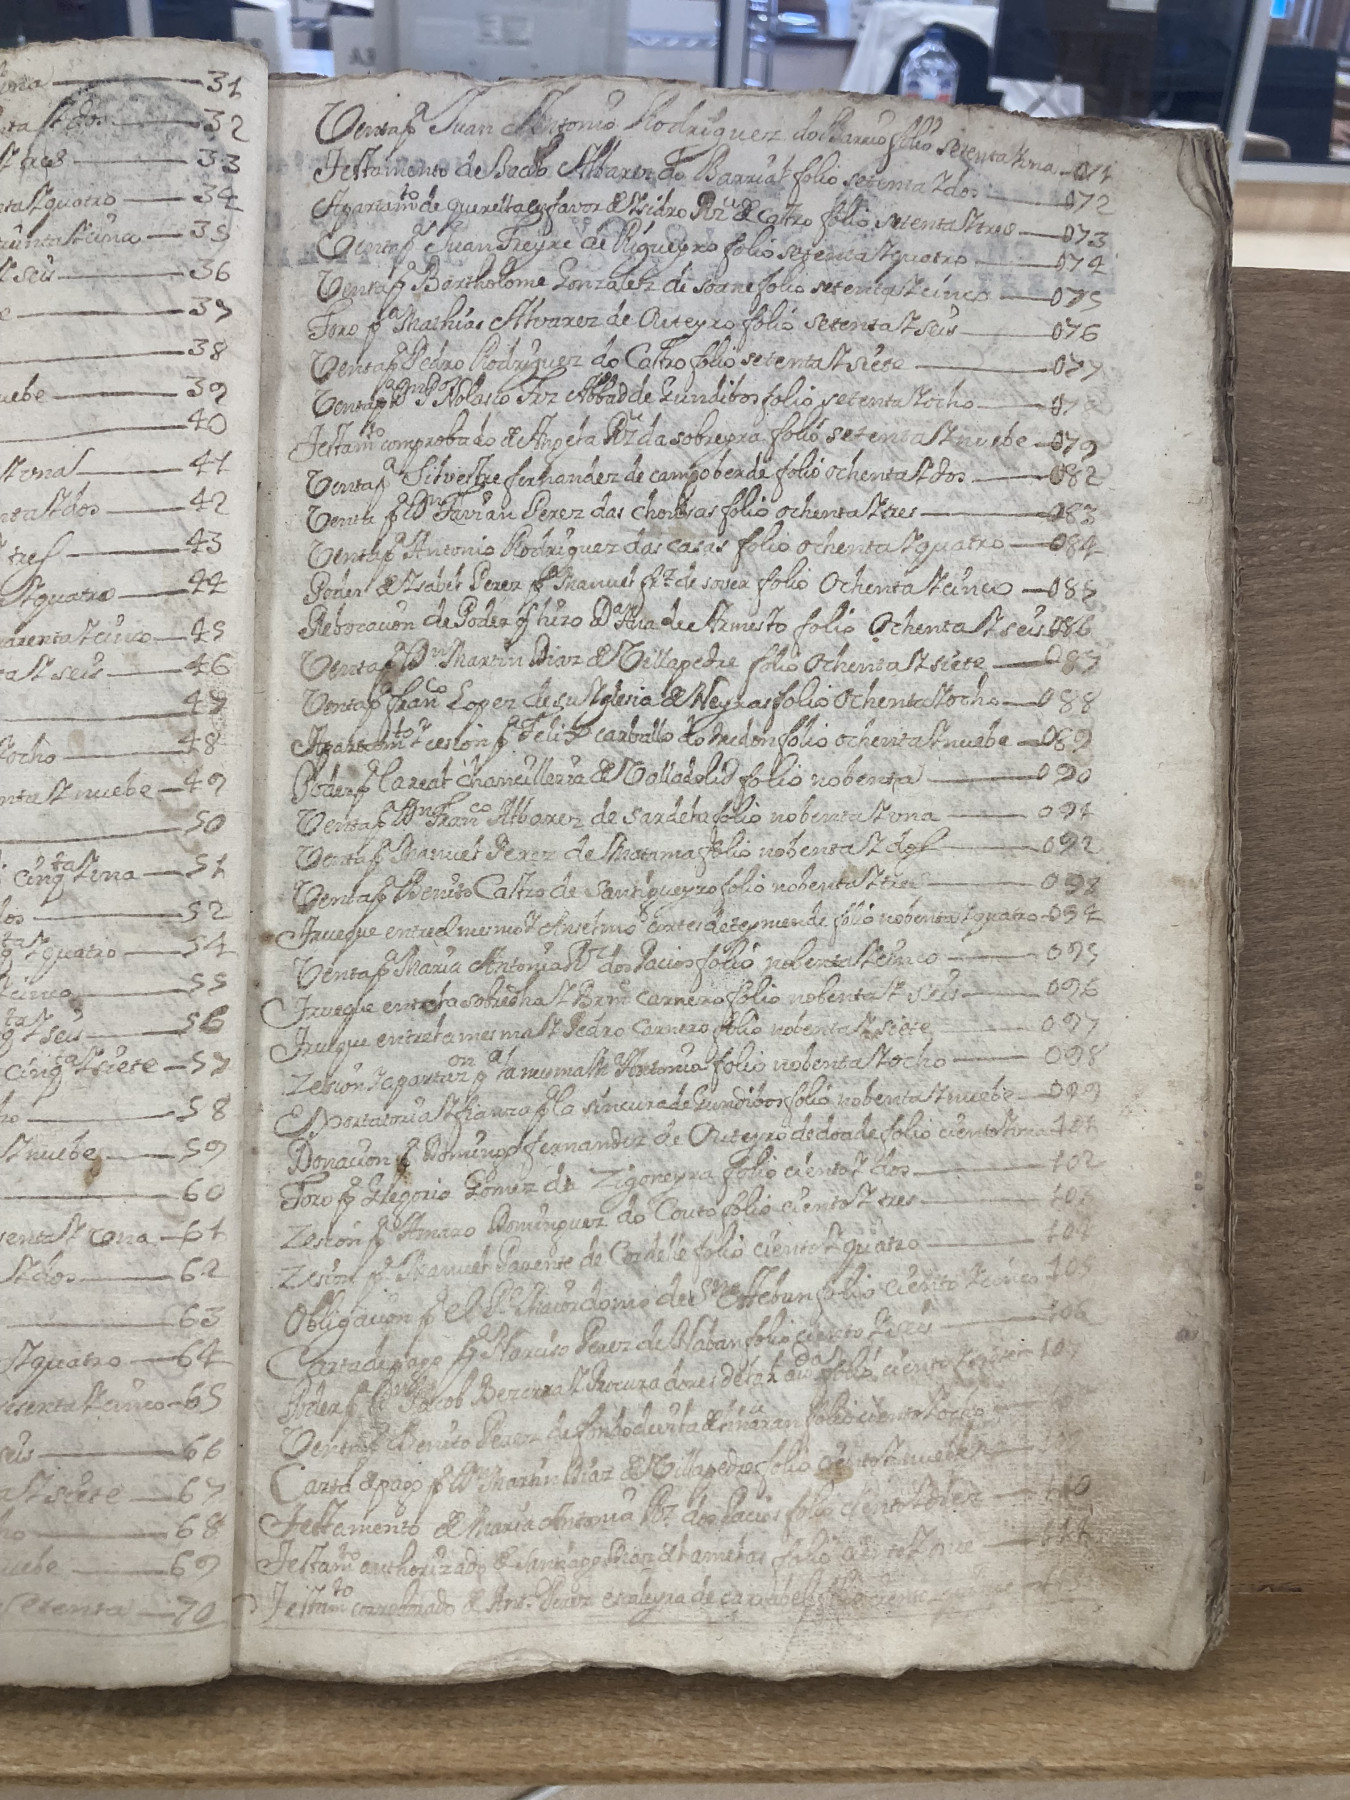 una 31
ta y dos 32
y tres 33
nta y quatro 34
treinta y cinco 35
y seis 36
e 37
38
uebe 39
40
y una 41
nta y dos 42
y tres 43
y quatro 44
quarenta y cinco 45
ta y seis 46
47
y ocho 48
nta y nuebe 49
50
cinqta y una 51
dos 52
qta y quatro 54
y cinco 55
qta y seis 56
cinqta y siete 57
ho 58
y nuebe 59
60
senta y una 61
y dos 62
63
y quatro 64
sesenta y cinco 65
seis 66
ta y siete 67
ho 68
uebe 69
setenta 70
Venta pa Juan Antonio Rodriguez do Barrio folio setenta y una 071
Testamento de Jacob Albarez do Barrial folio setenta y dos 072
Apartamto de querella a favor de Isidro Rz de Castro folio setenta y tres 073
Venta pa Juan Freyre de Rigueyro folio setenta y quatro 074
Venta pa Bartholome Gonzalez de Soane folio setenta y cinco 075
Foro pa Mathias Alvarez de Outeyro folio setenta y seis 076
Venta pa Pedro Rodriguez do Castro folio setenta y siete 077
Venta pa Dn Po Nolasco Frz Abbad de Gundibos folio setenta y ocho 078
Testamto comprobado de Angela Rz da sobreyra folio setenta y nuebe 079
Venta pa Silvestre fernandez de campoberde folio ochenta y dos 082
Venta pa Dn Favian Perez das chousas folio ochenta y tres 083
Venta pa Antonio Rodriguez das casas folio ochenta y quatro 084
Poder de Isabel Perez pa Manuel frz de sober folio ochenta y cinco 085
Rebocacion de Poder q hizo Da Ana de Armesto folio Ochenta y seis 086
Venta pa Dn Martin Diaz de Villapedre folio ochenta y siete 087
Venta pa franco Lopez de su Yglesia de Neyras folio Ochenta y ocho 088
Apartamto y cesion pa Felix carballo do redon folio ochenta y nuebe 089
Poder pa la real chancilleria de Valladolid folio nobenta 090
Venta pa Dn Franco Albarez de Sardela folio nobenta y una 091
Venta pa Manuel Perez de Matama folio nobenta y dos 092
Venta pa Benito Castro de Santigueyro folio nobenta y tres 093
Trueque entre el mesmo y Anselmo cortes de folio nobenta y quatro 094
Venta pa Maria Antonia Rz dos Pacios folio nobenta y cinco 095
Trueque entre la sobredha y Brme carnero folio nobenta y seis 096
Trueque entre la mesma y Pedro carnero folio nobenta y siete 097
Zesion y apartazon pa la mesma Ma Antonia folio nobenta y ocho 098
y fianza pa la sincura de Gundibos folio nobenta y nuebe 099
Donacion pa Domingo fernandez de Outeyro de doade folio ciento y una 101
Foro pa Gregorio Gomez da Zigoneyra folio ciento y dos 102
Zesion pa Amaro Dominguez do Couto folio ciento y tres 103
Zesion pa Manuel Parente de Cordelle folio ciento y quatro 104
Obligacion pa el Mayordomo de Sn Esteban folio ciento y cinco 105
Carta de pago pa Narciso Perez de Naban folio ciento y seis 106
Poder pa Dn Jacob Bezerra y Procuradores de la Auda folio ciento y siete 107
Venta pa Benito Perez de folio ciento y ocho
Carta de pago pa Dn Martin Diaz de Villapedre folio ciento y nuebe
Testamento de Maria Antonia Rz dos Pacios folio ciento y diez 110
Testamto authorizado de Santiago Diaz folio ciento y once 111
Testamto corroborado de Anto Perez folio ciento